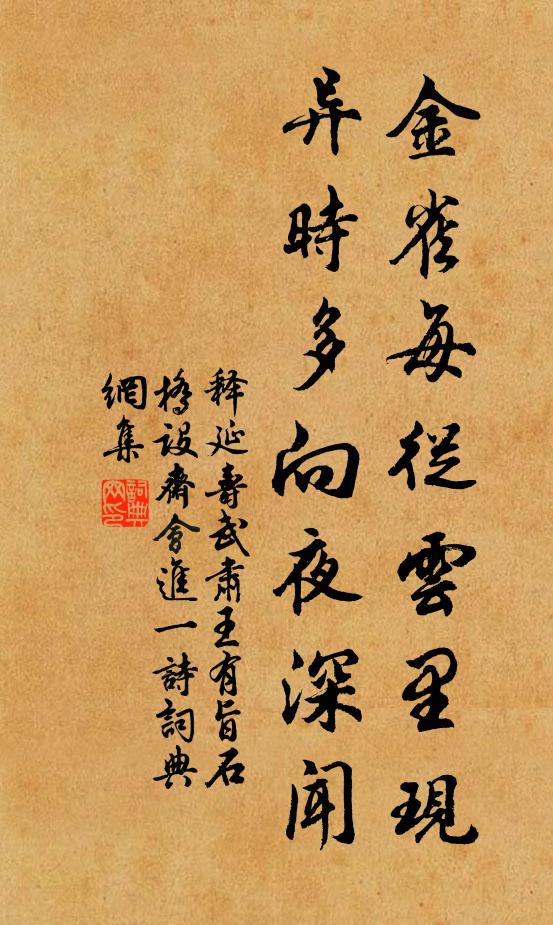 金雀每從雲里現
异時多向夜深聞
释延壽武肅王有旨石
橋設齋會進一詩詞典
網集
詞典
網印